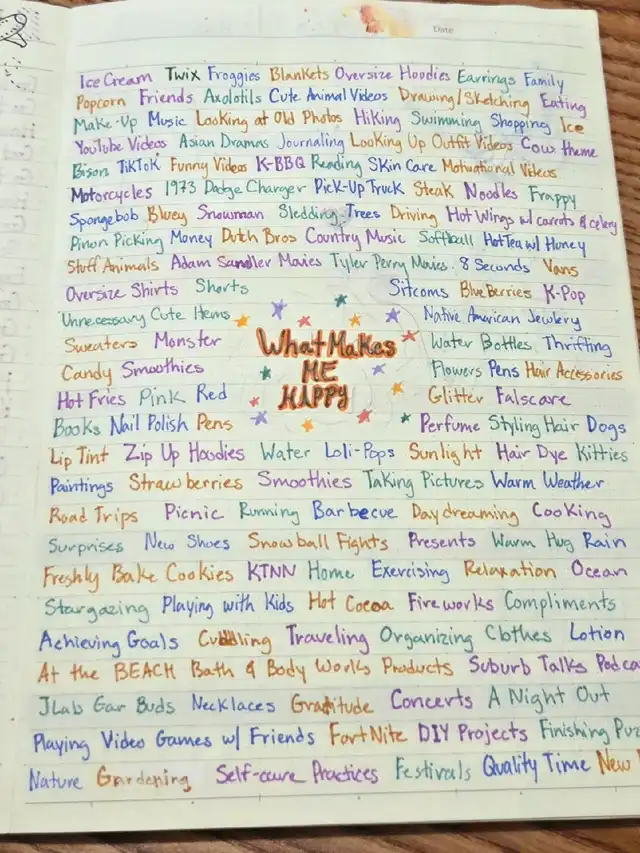 Date
Ice Cream Twix Froggies Blankets Oversize Hoodies Earrings Family
Popcorn Friends Axolotils Cute Animal Videos Drawing/Sketching Eating
Make-Up Music Looking at Old Photos Hiking Swimming Shopping Ice
YouTube Videos Asian Dramas Journaling Looking Up Outfit Videos Cow theme
Bison TikTok Funny Videos K-BBQ Reading Skin Care Motivational Videos
Motorcycles 1973 Dodge Charger Pick-Up Truck Steak Noodles Frappy
Spongebob Bluey Snowman Sledding Trees Driving Hot Wings w/ carrots & celery
Pinon Picking Money Dutch Bros Country Music Softball Hot Tea w/ Honey
Stuff Animals Adam Sandler Movies Tyler Perry Movies 8 Seconds Vans
Oversize Shirts Shorts Sitcoms BlueBerries K-Pop
Unnecessary Cute Items Native American Jewlery
Sweaters Monster Water Bottles Thrifting
Candy Smoothies Flowers Pens Hair Accessories
Hot Fries Pink Red Glitter Falscare
Books Nail Polish Pens Perfume Styling Hair Dogs
What Makes
ME
HAPPY
Lip Tint Zip Up Hoodies Water Loli-Pops Sunlight Hair Dye Kitties
Paintings Strawberries Smoothies Taking Pictures Warm Weather
Road Trips Picnic Running Barbecue Daydreaming Cooking
Surprises New Shoes Snowball Fights Presents Warm Hug Rain
Freshly Bake Cookies KTNN Home Exercising Relaxation Ocean
Stargazing Playing with Kids Hot Cocoa Fireworks Compliments
Achieving Goals Cuddling Traveling Organizing Clothes Lotion
At the BEACH Bath & Body Works Products Suburb Talks Podca
JLab Ear Buds Necklaces Gratitude Concerts A Night Out
Playing Video Games w/ Friends FortNite DIY Projects Finishing Puz
Nature Gardening Self-care Practices Festivals Quality Time New